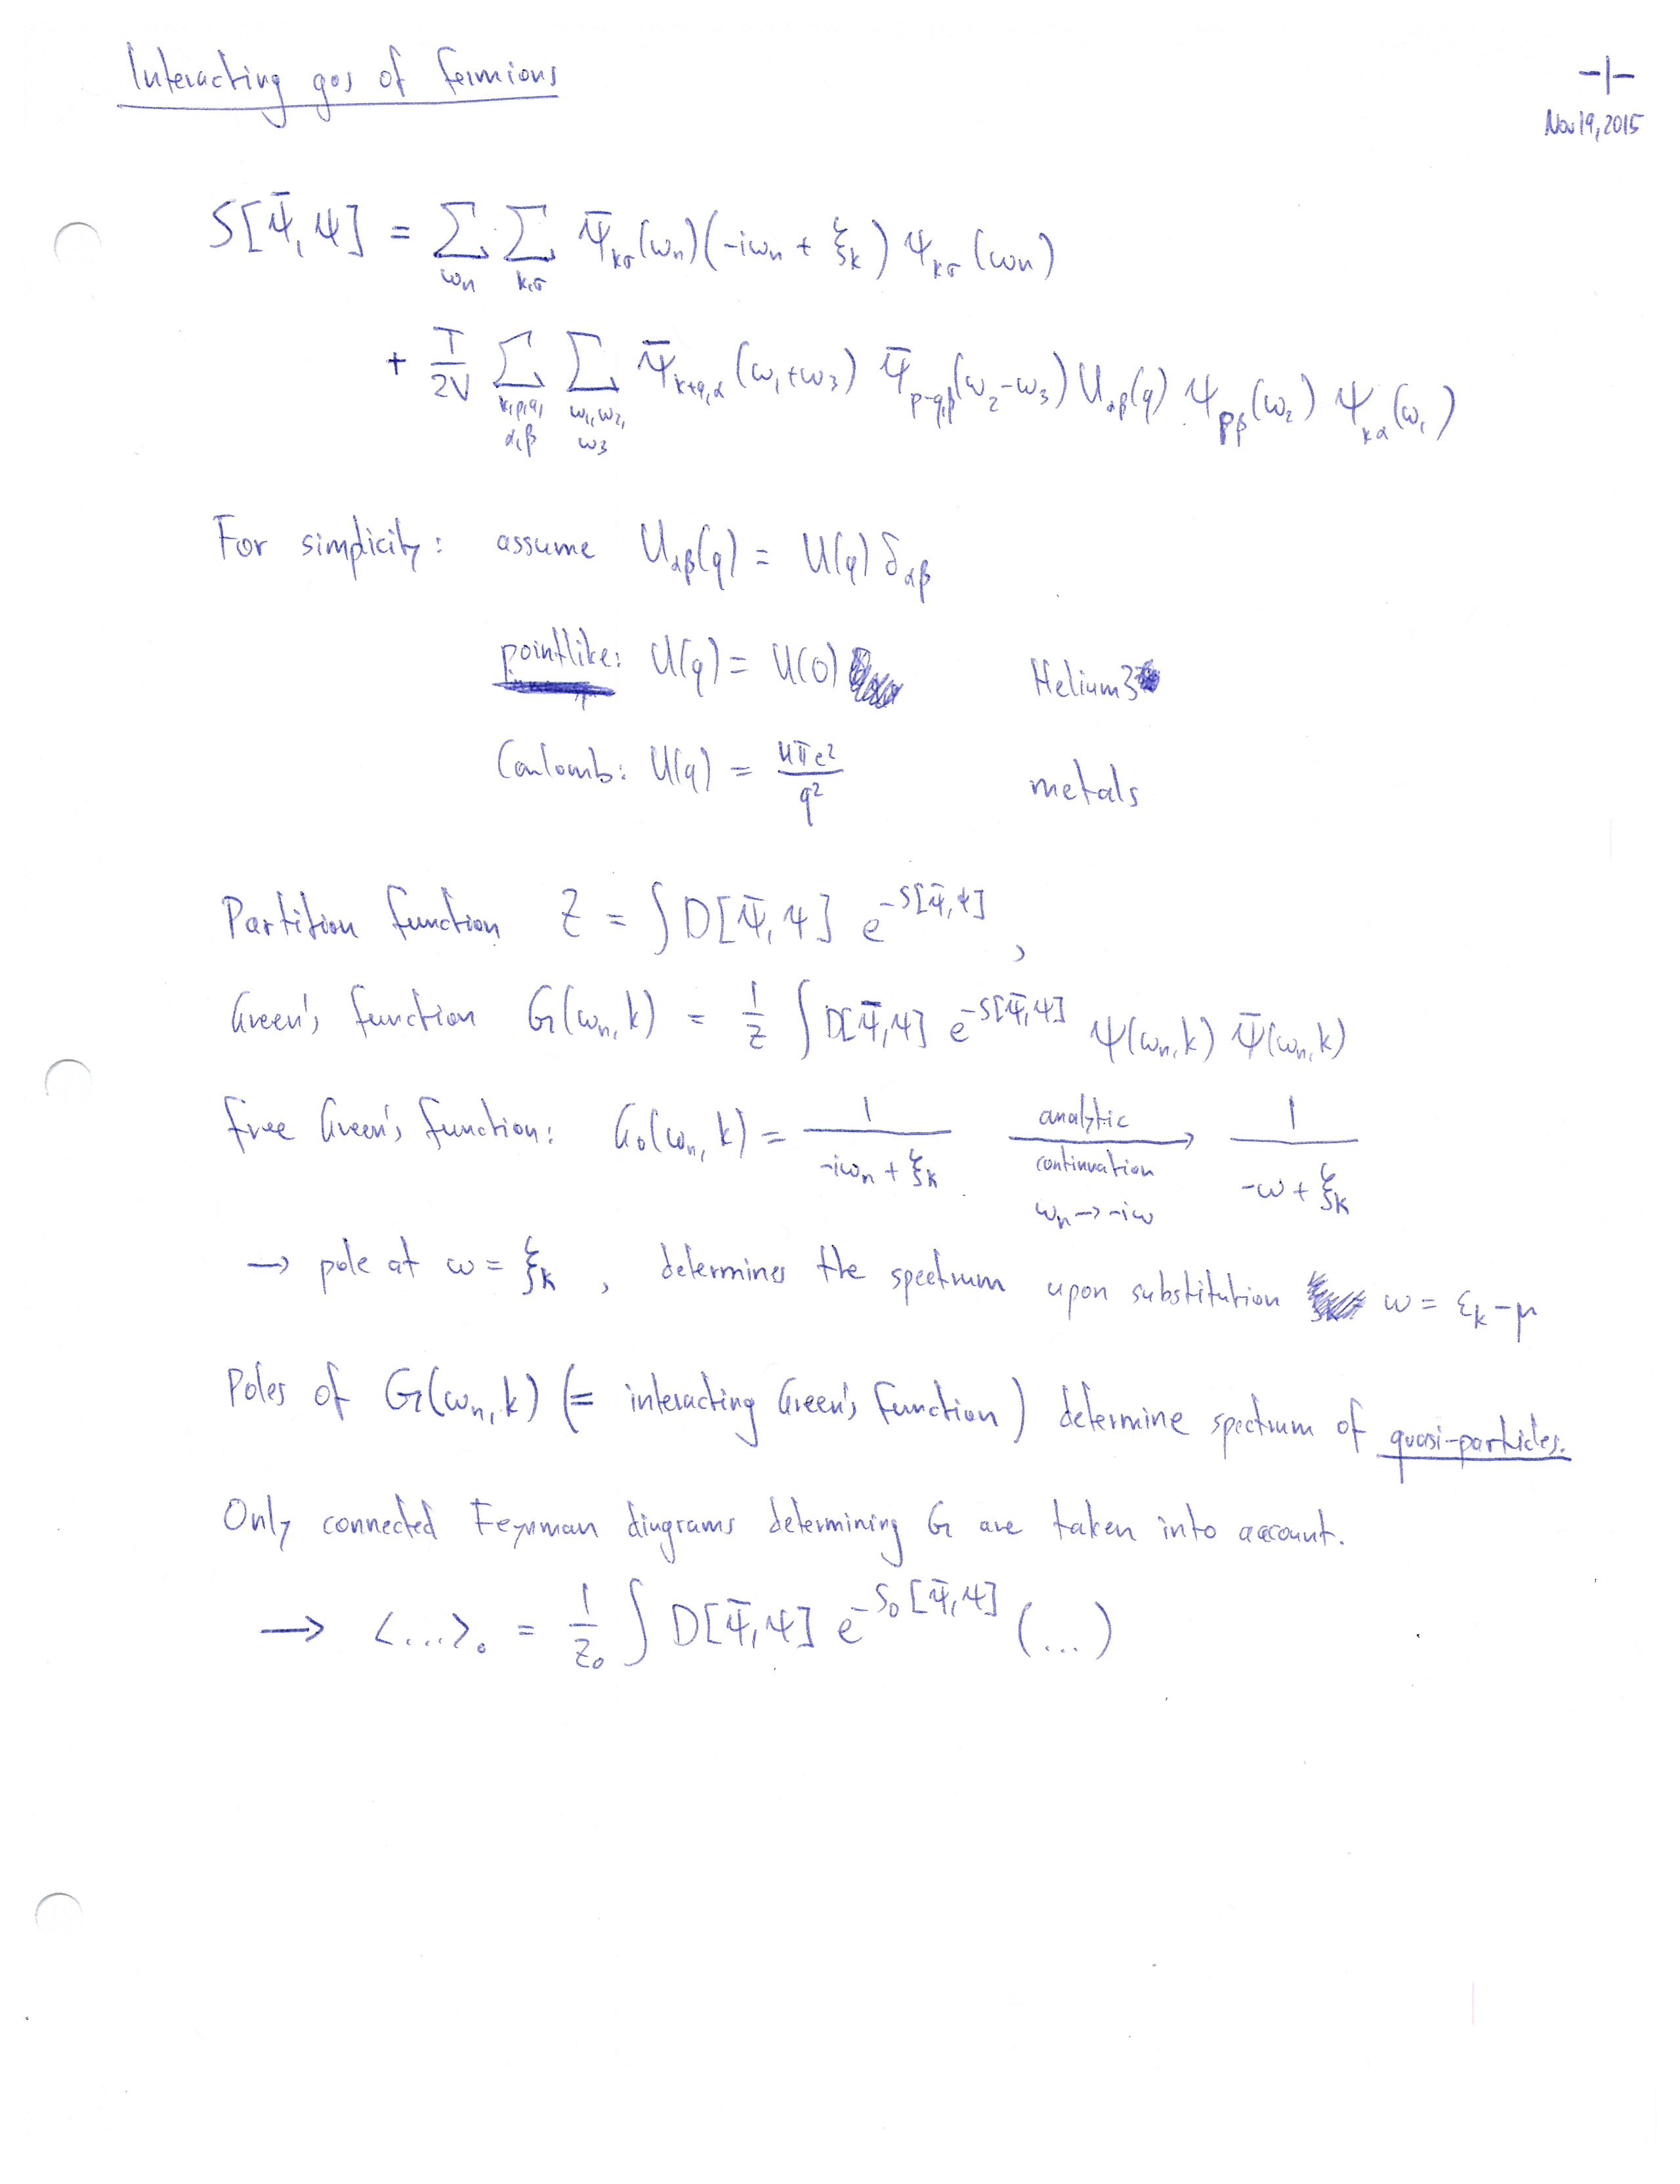 Interacting gas of fermions
-1-
Nov 19, 2015
S[ψ̄, ψ] = ∑_{ω_n} ∑_{k,σ} ψ̄_{kσ}(ω_n)(-iω_n + ξ_k) ψ_{kσ}(ω_n)
+ T/2V ∑_{k,p,q,α,β} ∑_{ω_1,ω_2,ω_3} ψ̄_{k+q,α}(ω_1+ω_3) ψ̄_{p-q,β}(ω_2-ω_3) U_{αβ}(q) ψ_{pβ}(ω_2) ψ_{kα}(ω_1)
For simplicity: assume U_{αβ}(q) = U(q) δ_{αβ}
pointlike: U(q) = U(0) Helium3
Coulomb: U(q) = 4πe²/q² metals
Partition function Z = ∫ D[ψ̄, ψ] e^{-S[ψ̄,ψ]},
Green's function G(ω_n, k) = 1/Z ∫ D[ψ̄,ψ] e^{-S[ψ̄,ψ]} ψ(ω_n,k) ψ̄(ω_n,k)
free Green's function: G_0(ω_n, k) = 1/(-iω_n + ξ_k) analytic continuation ω_n → -iω → 1/(-ω + ξ_k)
→ pole at ω = ξ_k, determines the spectrum upon substitution ω = ε_k - μ
Poles of G(ω_n, k) (= interacting Green's function) determine spectrum of quasi-particles.
Only connected Feynman diagrams determining G are taken into account.
→ <...>_0 = 1/Z_0 ∫ D[ψ̄,ψ] e^{-S_0[ψ̄,ψ]} (...)